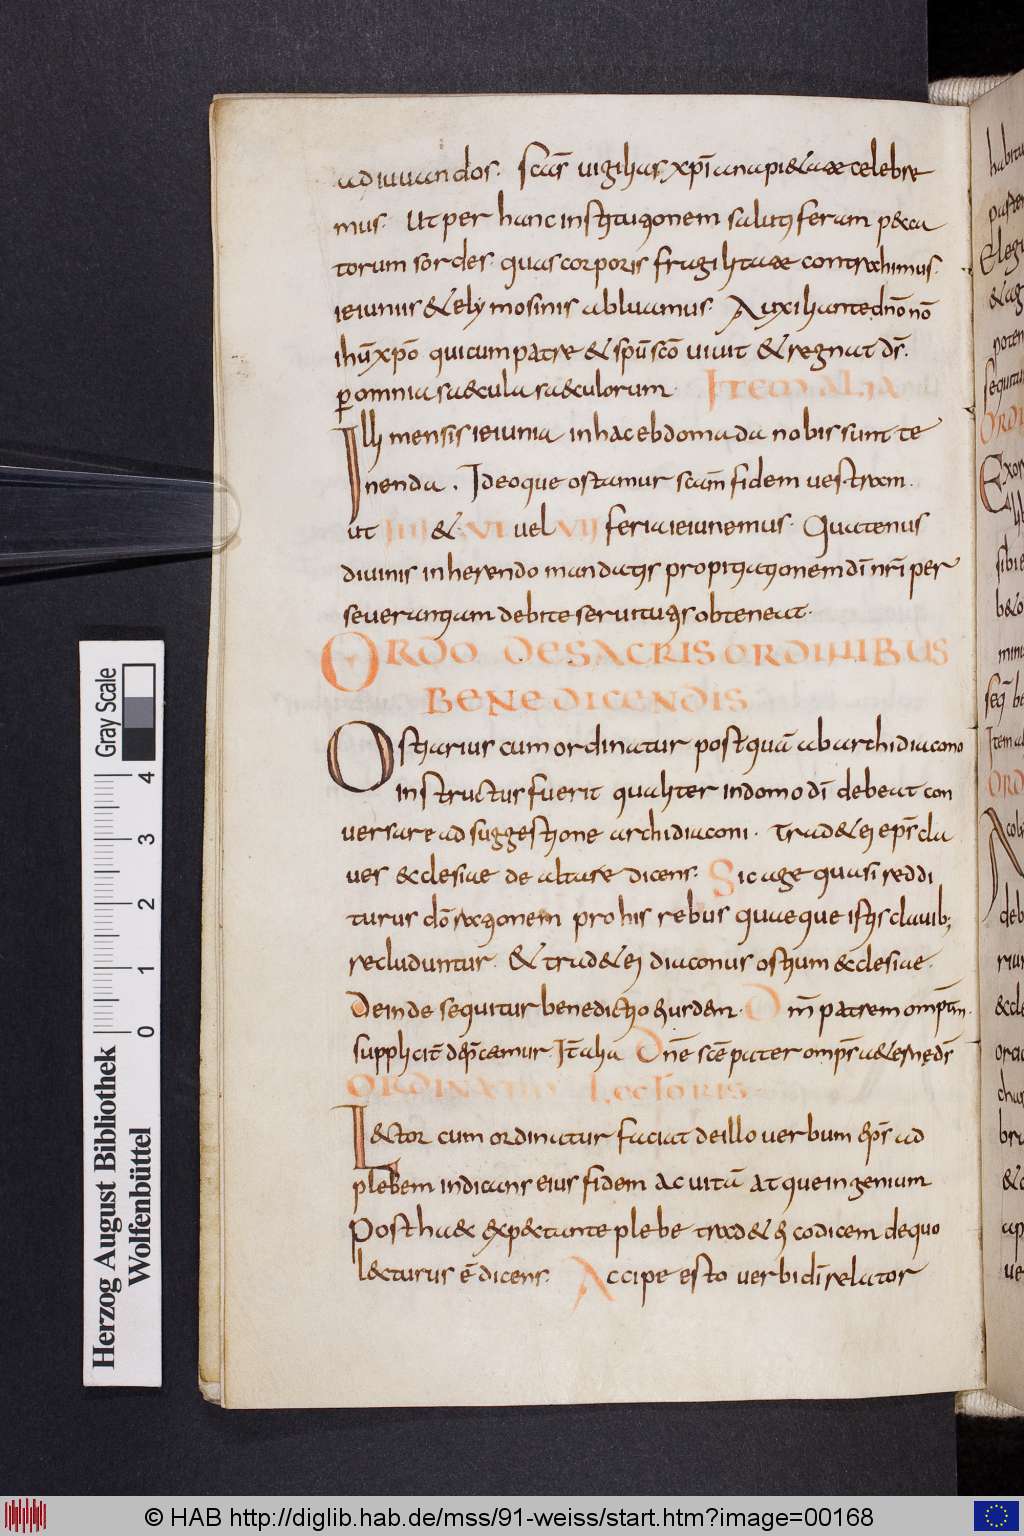 adiuuandos. scās uigilias xp̄iana pi&atae celebre
mus. Ut per hanc institutionem salutiferam p&ca
torum sordes. quas corporis fragilitatae contrahimus.
ieiuniis & elymosinis abluamus. Auxiliante dn̄o nō
ihū xp̄o qui cum patre & spū scō uiuit & regnat ds̄.
ꝑ omnia sa&cula sa&culorum. Item alia
Illi mensis ieiunia in hac ebdomada nobis sunt te
nenda. Ideoque ostamur scam̄ fidem uestram.
ut IIII & VI uel VII feria ieiunemus. Quatenus
diuinis inherendo mandatis propitiationem dī nr̄i per
seuerantiam debite seruitutis obteneat.
ORDO DE SACRIS ORDINIBUS
BENEDICENDIS
Ostiarius cum ordinatur postquā ab archidiacono
instructus fuerit qualiter in domo dī debeat con
uersare ad suggestione archidiaconi. trad& ei eps̄ cla
ues &clesiae de altare dicens. Sic age quasi reddi
turus dō rationem pro his rebus quae que istis clauib;
recluduntur. & trad& ei diaconus ostium &clesiae.
Deinde sequitur benedictio eiusdem. Dm̄ patrem omp̄tm.
suppliciṫ dep̄camur. It̄ aliā Dn̄e scē pater omps̄ a&erne ds̄
ORDINATIO Lectoris
L&tor cum ordinatur faciat de illo uerbum eps̄ ad
plebem indicans eius fidem ac uitā atque ingenium
Post ha&c exp&tante plebe trad& ei codicem de quo
l&turus ē dicens. Accipe esto uerbi dī relator
Gray Scale
0 1 2 3 4
Herzog August Bibliothek
Wolfenbüttel
© HAB http://diglib.hab.de/mss/91-weiss/start.htm?image=00168